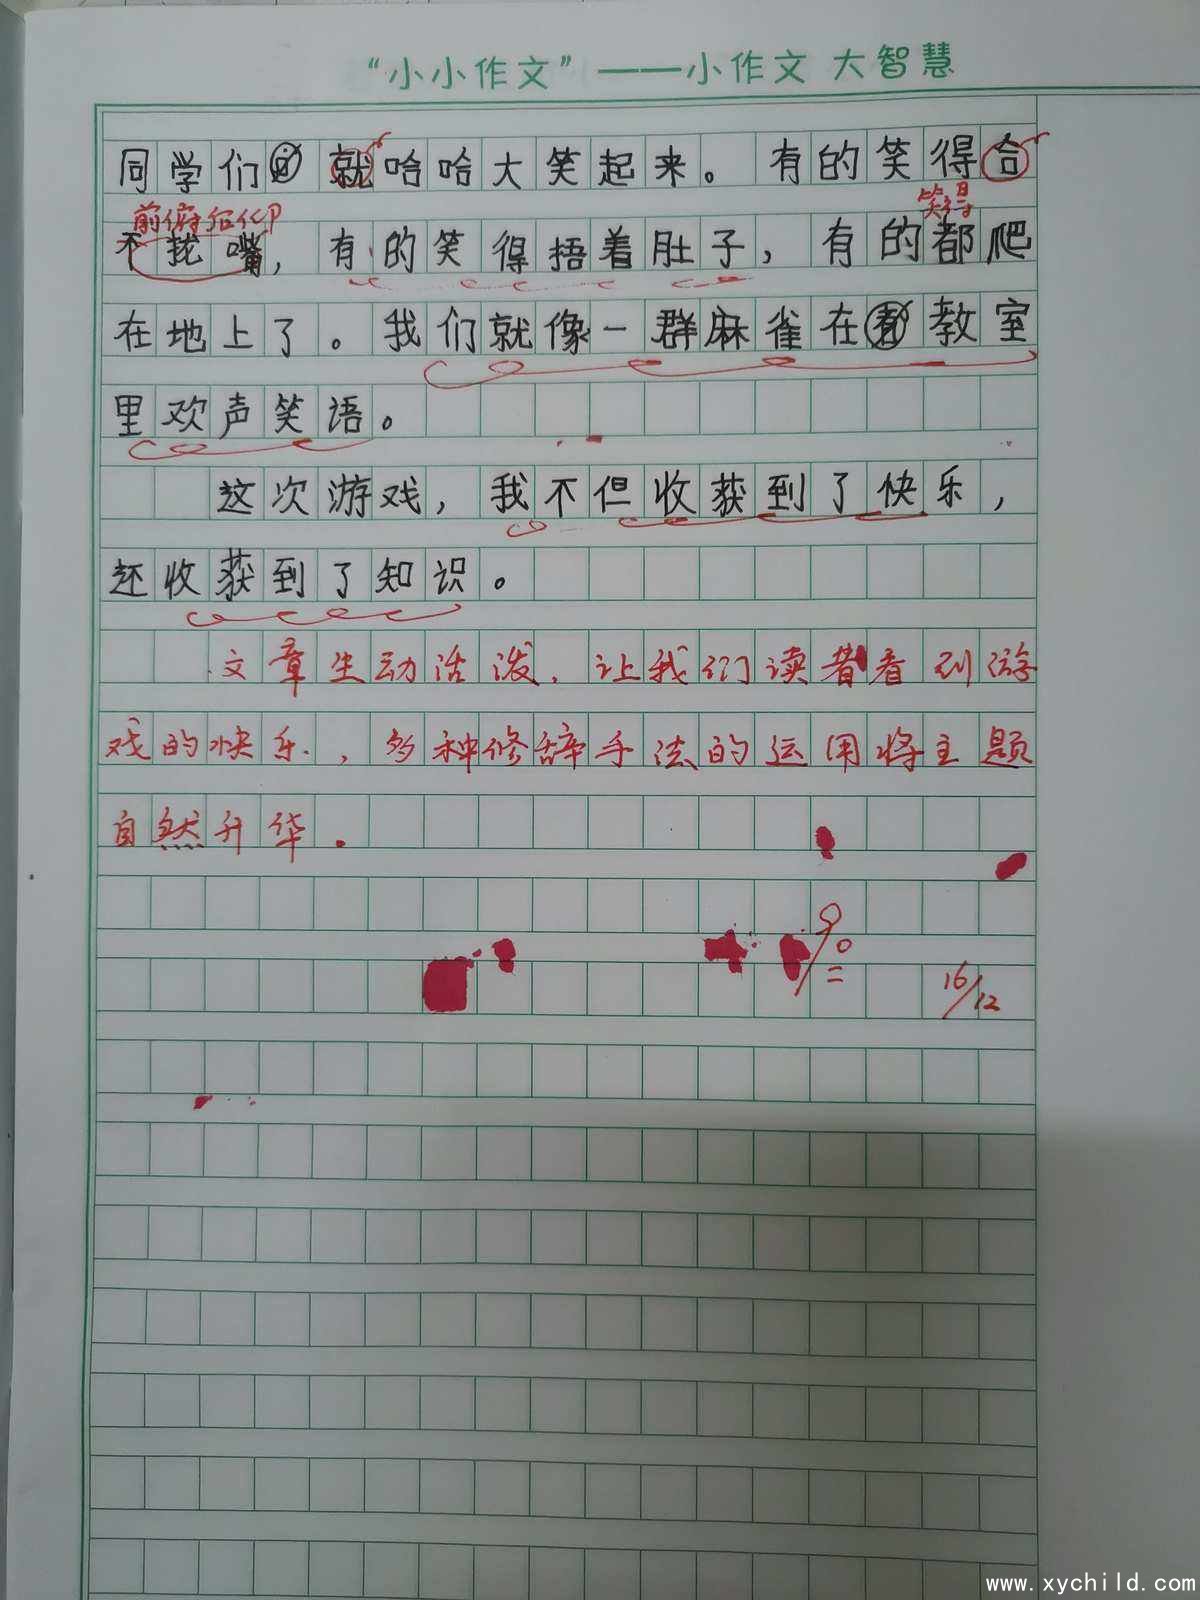 “小小作文”——小作文 大智慧
同学们就哈哈大笑起来。有的笑得合
前俯后仰
笑得
不拢嘴，有的笑得捂着肚子，有的都爬
在地上了。我们就像一群麻雀在教室
里欢声笑语。
这次游戏，我不但收获到了快乐，
还收获到了知识。
文章生动活泼，让我们读者看到游
戏的快乐，多种修辞手法的运用将主题
自然升华.
90
16/12
www.xychild.com